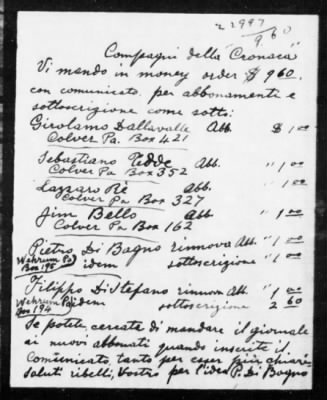 2 2997
9.60
Compagni della "Cronaca"
Vi mando in money order $ 9 60.
con comunicato, per abbonamenti e
sottoscrizione come sotto:
Girolamo Dallavalle Abb. $ 1.00
Colver Pa. Box 421
Sebastiano Pedde Abb. " 1.00
Colver Pa Box 352
Lazzaro Rè abb. " 1.00
Colver Pa Box 327
Jim Bello abb " 1.00
Colver Pa Box 162
Pietro Di Bagno rinnova Abb. " 1.00
Wehrum Pa idem sottoscrizione " 1.00
Box 195
Filippo Di Stefano rinnova Abb. " 1.00
Wehrum Pa idem sottoscrizione 2 60
Box 194
Se potete, cercate di mandare il giornale
ai nuovi abbonati quando inserite il
comunicato, tanto per esser più chiari
saluti ribelli, Vostro per l'idea P. Di Bagno